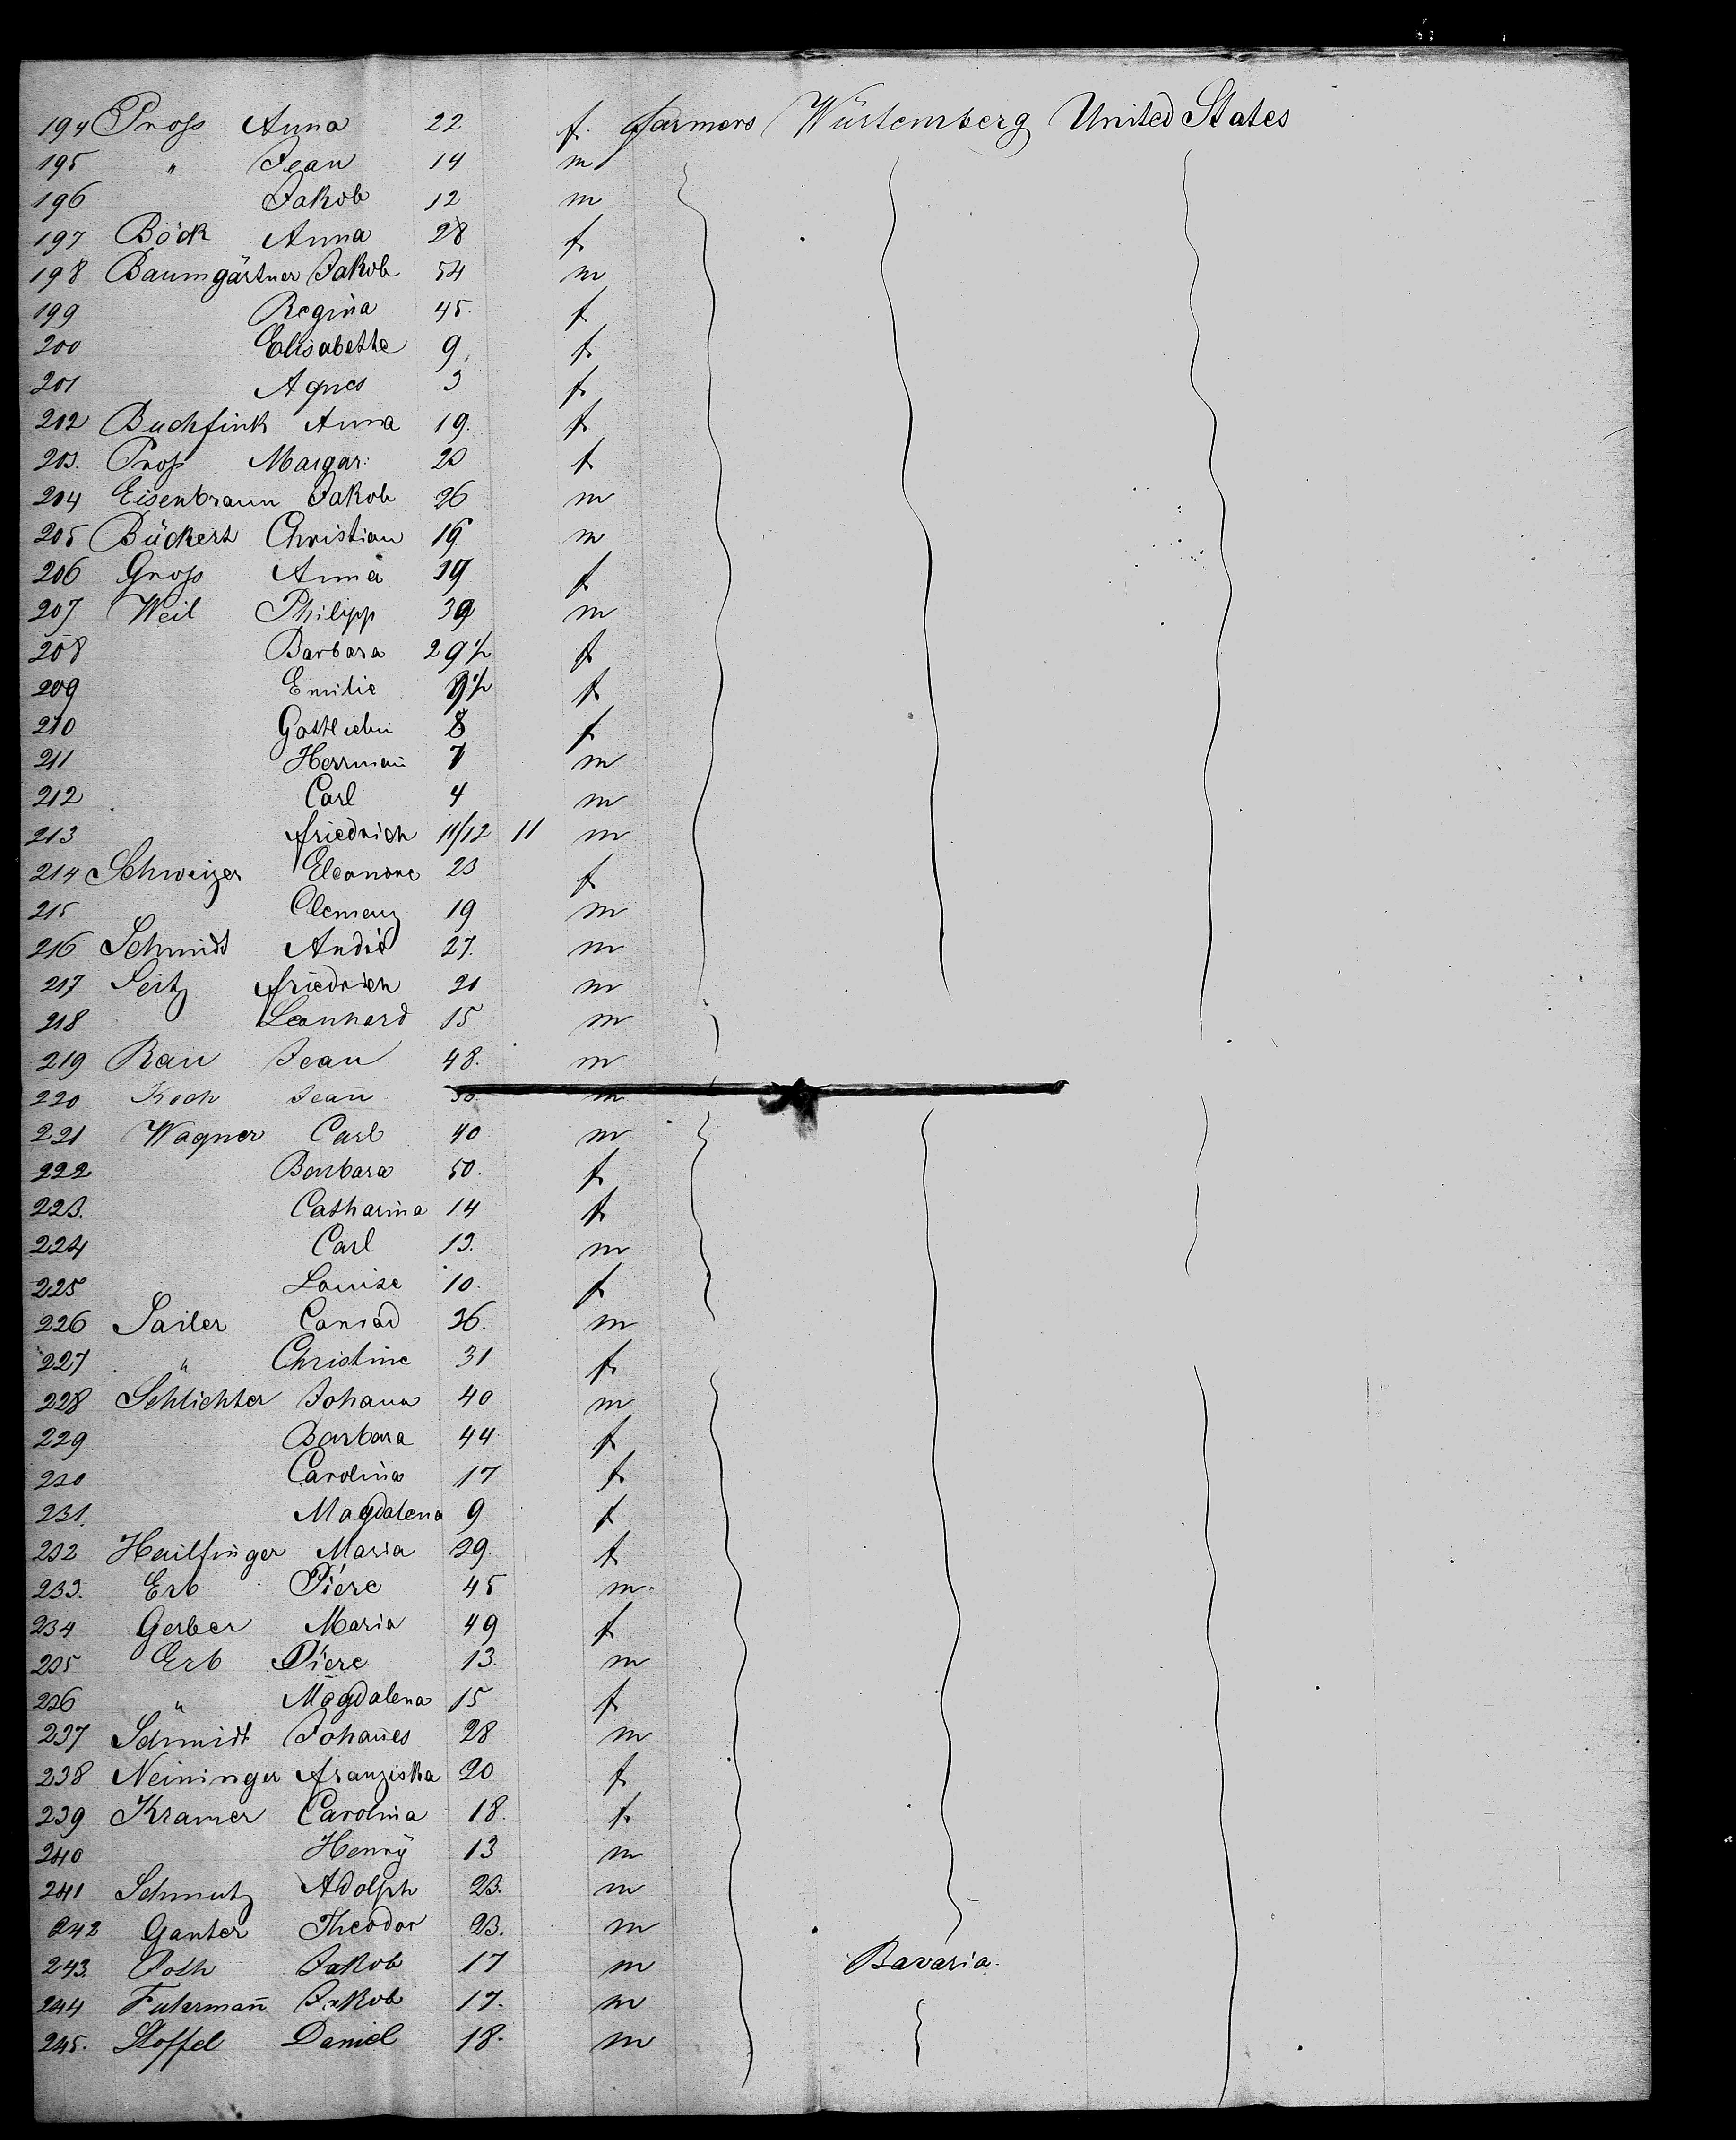 194 Proß Anna 22 f. farmers Würtemberg United States
195 " Jean 14 m
196 Jakob 12 m
197 Böck Anna 28 f
198 Baumgärtner Jakob 54 m
199 Regina 45. f
200 Elisabethe 9 f.
201 Agnes 3 f.
202 Buchfink Anna 19. f
203. Proß Margar: 20 f
204 Eisenbraun Jakob 26 m
205 Bückert Christian 19 m
206 Groß Anna 39 f
207 Weil Philipp 39 m
208 Barbara 29 1/2 f
209 Emilie 9 1/2 f
210 Gottliebin 8 f
211 Herrmañ 7 m
212 Carl 4 m
213 friedrich 11/12 11 m
214 Schweizer Eleonore 23 f
215 Clemenz 19 m
216 Schmidt André 27. m
217 Seitz friedrich 21 m
218 Leonhard 15 m
219 Rau Jean 48. m
220 Koch Jean m
221 Wagner Carl 40 m
222 Barbara 50. f
223. Catharina 14 f
224 Carl 13. m
225 Louise 10. f
226 Sailer Conrad 36. m
227 " Christine 31 f
228 Schlichter Johann 40 m
229 Barbara 44 f
230 Carolina 17 f
231. Magdalena 9 f
232 Hailfinger Maria 29. f
233. Erb Piére 45 m.
234 Gerber Maria 49 f
235 Erb Piére 13. m
236 " Magdalena 15 f
237 Schmidt Johañes 28 m
238 Neininger franziska 20 f
239 Kramer Carolina 18. f.
240 Henry 13 m
241 Schmutz Adolph 23. m
242 Ganter Theodor 23. m
243. Poth Jakob 17 m Bavaria.
244 Fuhrmañ Jakob 17. m
245. Stoffel Daniel 18. m